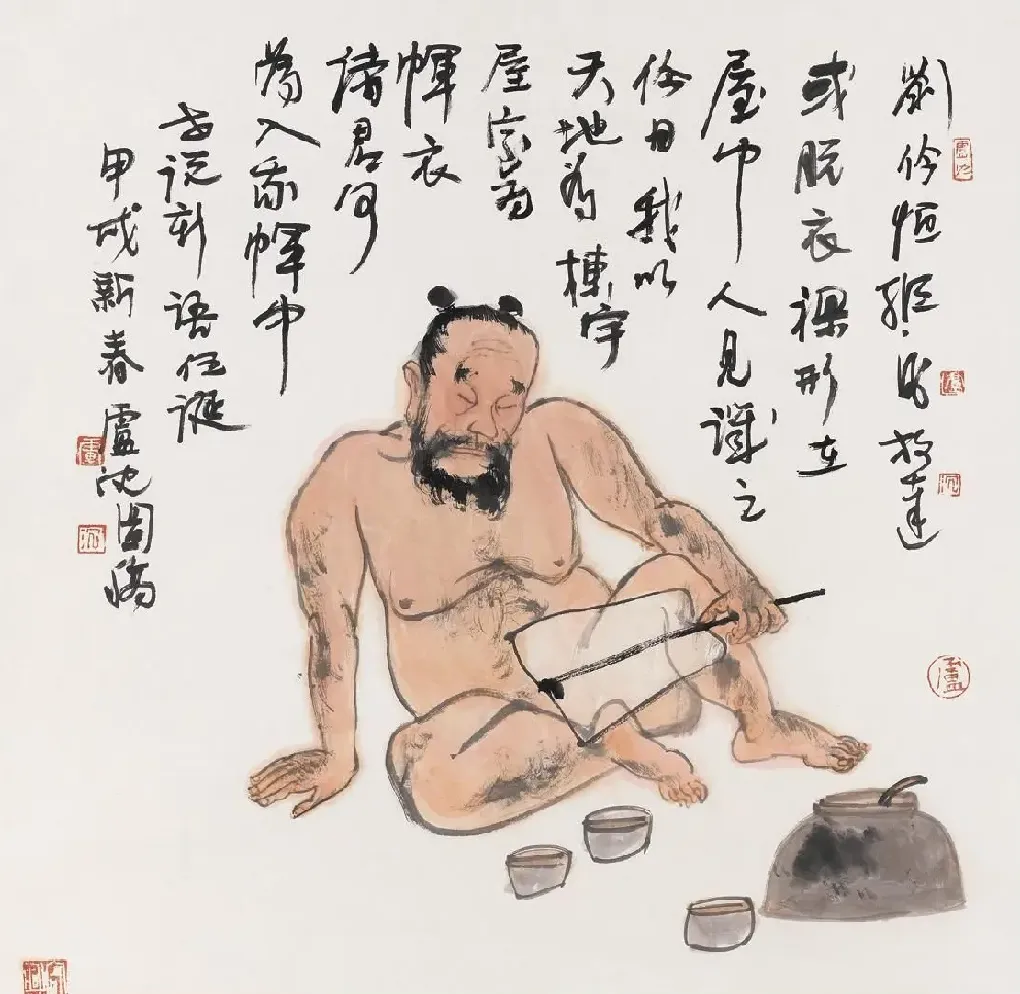 劉伶恒縱酒放達
或脫衣裸形在
屋中人見譏之
伶曰我以
天地為棟宇
屋室為
褌衣
諸君何
為入我褌中
世說新語任誕
甲戌新春盧沈圖